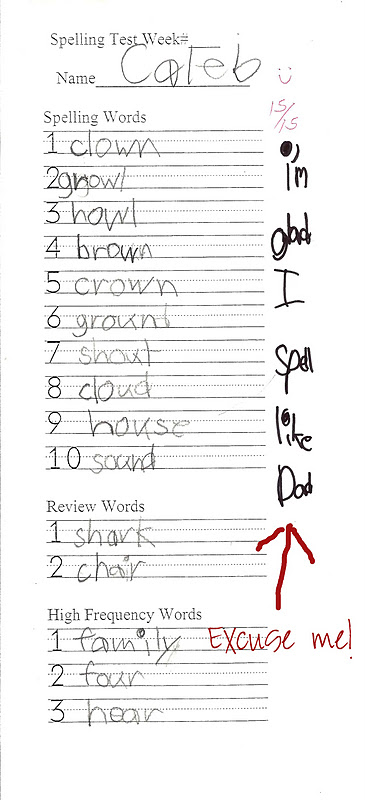 Spelling Test Week#
Name Caleb
15/15
Spelling Words
1 clown
2 growl
3 howl
4 brown
5 crown
6 ground
7 shout
8 cloud
9 house
10 sound
Review Words
1 shark
2 chair
High Frequency Words
1 family
2 four
3 hear
I'm
glad
I
spell
like
Dad
EXCUSE me!